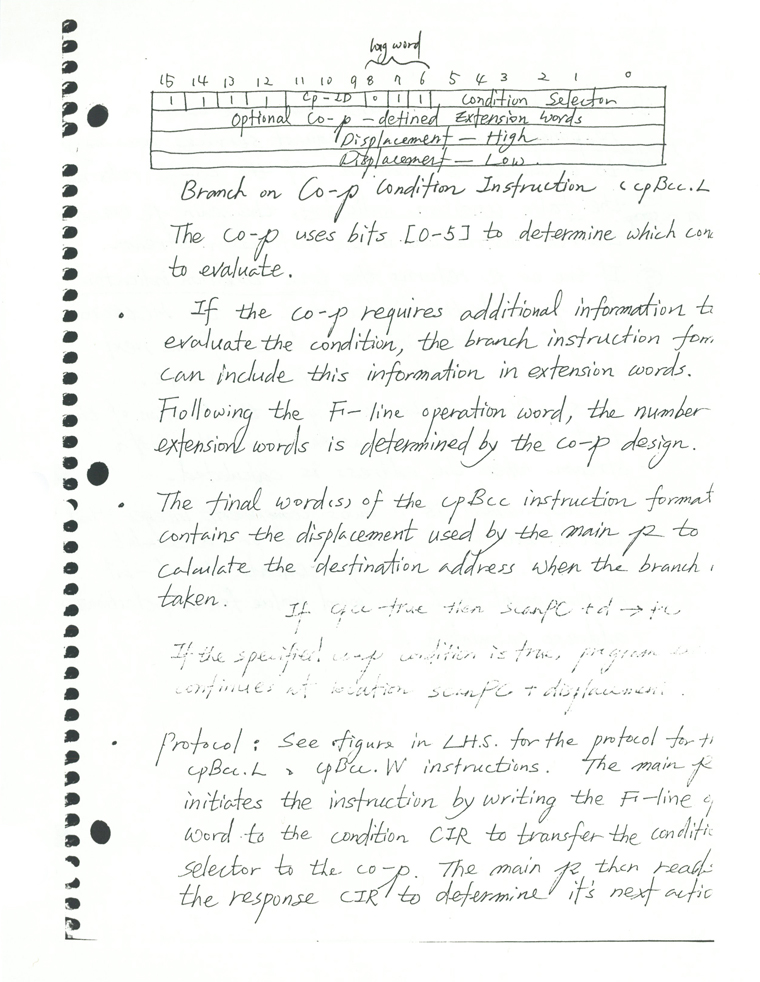 long word
15 14 13 12 11 10 9 8 7 6 5 4 3 2 1 0
1 1 1 1 Cp-ID 0 1 1 Condition Selector
Optional Co-p-defined Extension Words
Displacement — High
Displacement — Low
Branch on Co-p Condition Instruction (cpBcc.L
The co-p uses bits [0-5] to determine which con
to evaluate.
If the co-p requires additional information t
evaluate the condition, the branch instruction for
can include this information in extension words.
Following the F-line operation word, the number
extension words is determined by the co-p design.
The final word(s) of the cpBcc instruction format
contains the displacement used by the main p to
calculate the destination address when the branch
taken. If true then scanPC + d →
If the specified co-p condition is true, program
continues at location scanPC + displacement.
Protocol: See figure in L.H.S. for the protocol for th
cpBcc.L, cpBcc.W instructions. The main p
initiates the instruction by writing the F-line
word to the condition CIR to transfer the conditi
selector to the co-p. The main p then reads
the response CIR to determine it's next actio